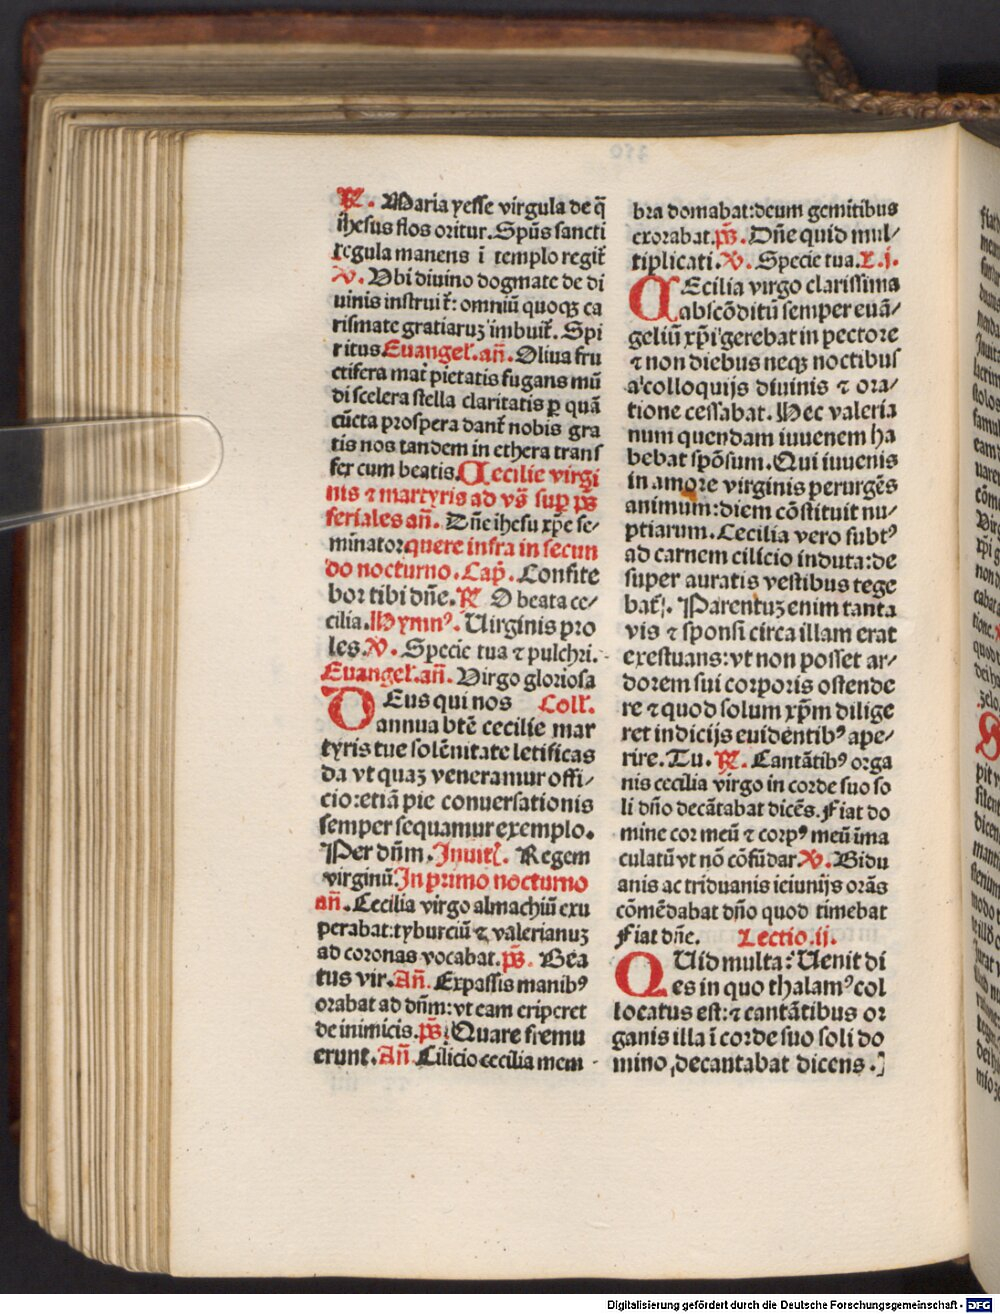 ℟. Maria yesse virgula de q̄
ihesus flos oritur. Spūs sancti
regula manens ī templo regit᷑
℣. Vbi diuino dogmate de di
uinis instruit᷑: omniū quoqꝫ ca
rismate gratiaruꝫ imbuit᷑. Spi
ritus Euangeł. an̄. Oliua fru
ctifera mat᷑ pietatis fugans mū
di scelera stella claritatis ꝑ quā
cūcta prospera dant᷑ nobis gra
tis nos tandem in ethera trans
fer cum beatis. Cecilie virgi
nis ⁊ martyris ad vs̄ suꝑ ps̄
feriales an̄. Dn̄e ihesu xp̄e se⸗
minator quere infra in secun
do nocturno. Cap̄. Confite
bor tibi dn̄e. ℟ O beata ce⸗
cilia. Hymnꝰ. Uirginis pro
les. ℣. Specie tua ⁊ pulchri.
Euangeł. an̄. Virgo gloriosa
DEus qui nos Coll᷑.
annua btē cecilie mar
tyris tue solēnitate letificas
da vt quaꝫ veneramur offi⸗
cio: etiā pie conuersationis
semper sequamur exemplo.
Per dn̄m. Inuit᷑. Regem
virginū. In primo nocturno
an̄. Cecilia virgo almachiū exu
perabat: tyburciū ⁊ valerianuꝫ
ad coronas vocabat. ps̄. Bea
tus vir. An̄. Expassis manibꝰ
orabat ad dn̄m: vt eam eriperet
de inimicis. ps̄. Quare fremu
erunt. An̄ Cilicio cecilia mem
bra domabat: deum gemitibus
exorabat. ps̄. Dn̄e quid mul⸗
tiplicati. ℣. Specie tua. L. j.
CEcilia virgo clarissima
abscōditū semper euā⸗
geliū xp̄i gerebat in pectore
⁊ non diebus neqꝫ noctibus
a colloquijs diuinis ⁊ ora⸗
tione cessabat. Hec valeria
num quendam iuuenem ha
bebat spōsum. Qui iuuenis
in amore virginis perurgēs
animum: diem cōstituit nu⸗
ptiarum. Cecilia vero subtꝰ
ad carnem cilicio induta: de
super auratis vestibus tege
bat᷑. Parentuꝫ enim tanta
vis ⁊ sponsi circa illam erat
exestuans: vt non posset ar⸗
dorem sui corporis ostende
re ⁊ quod solum xp̄m dilige
ret indicijs euidentibꝰ ape⸗
rire. Tu. ℟. Cantātibꝰ orga
nis cecilia virgo in corde suo so
li dn̄o decātabat dicēs. Fiat do
mine cor meū ⁊ corpꝰ meū īma
culatū vt nō cōfūdar. ℣. Bidu
anis ac triduanis ieiunijs orās
cōmēdabat dn̄o quod timebat
Fiat dn̄e. Lectio. ij.
QUid multa: Uenit di
es in quo thalamꝰ col
locatus est: ⁊ cantātibus or
ganis illa ī corde suo soli do
mino, decantabat dicens.
Digitalisierung gefördert durch die Deutsche Forschungsgemeinschaft - DFG